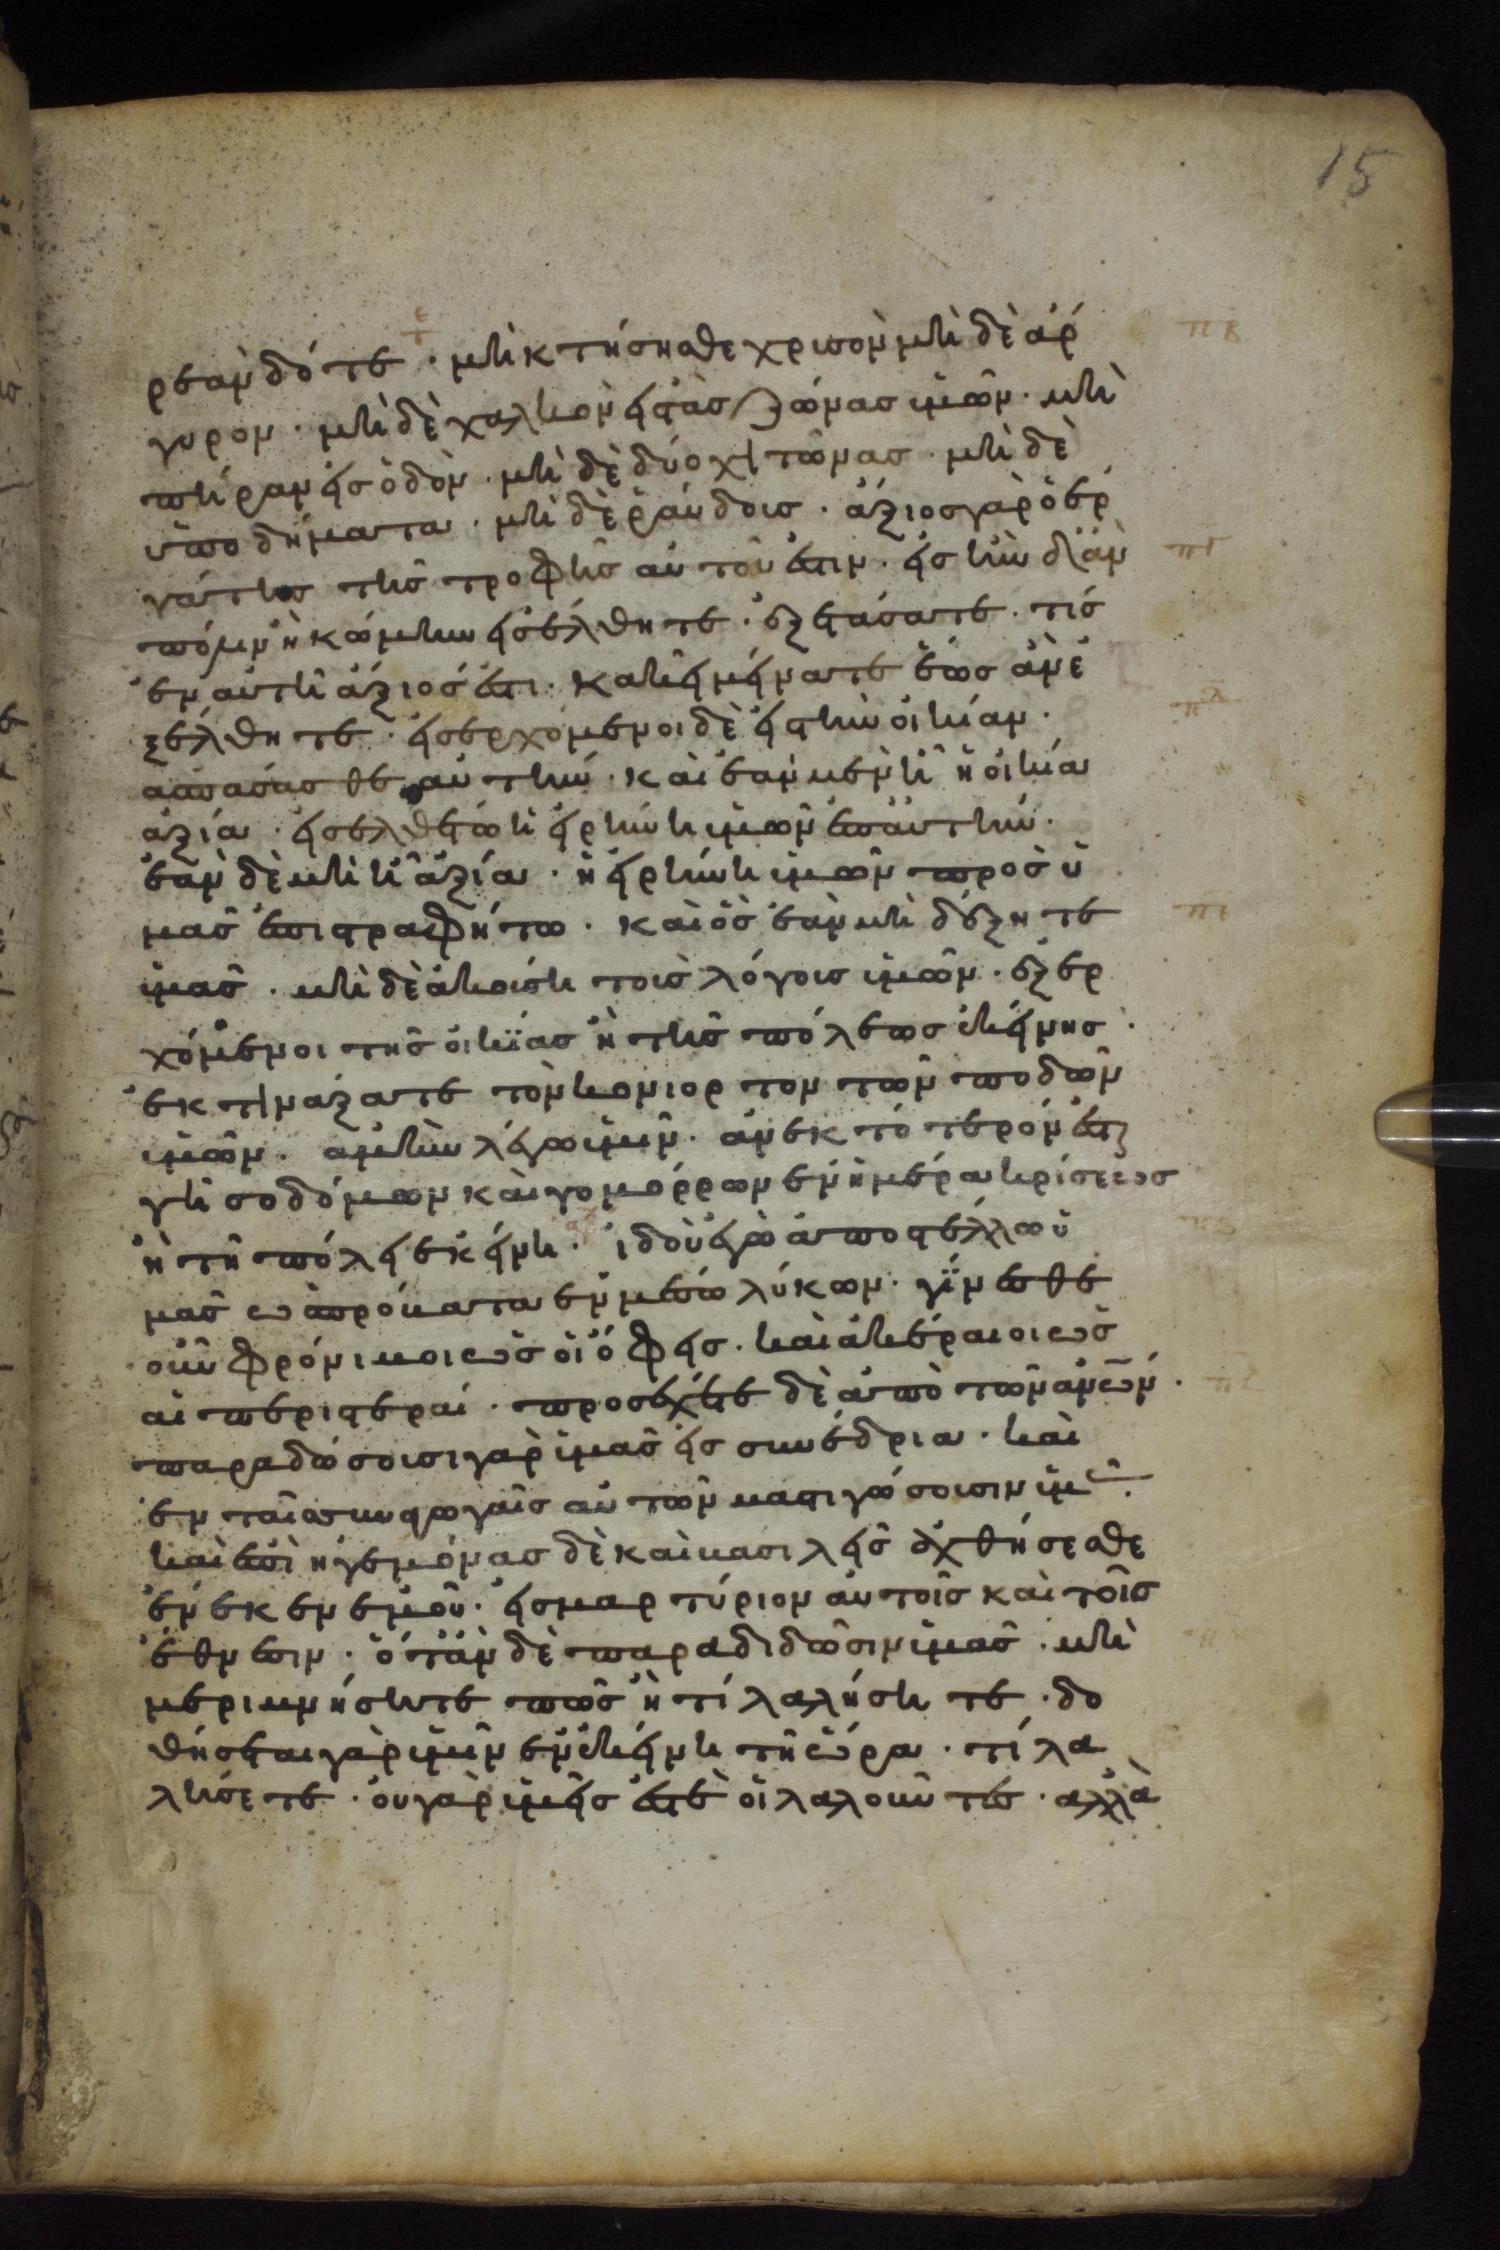 15
ρεὰν δότε · μὴ κτήσησθε χρισὸν μὴ δὲ ἄρ
γυρον · μὴ δὲ χαλκὸν εἰς τὰς ζώνας ἱμῶν · μὴ
πήραν εἰς ὁδὸν · μὴ δὲ δύο χιτῶνας · μὴ δὲ
ὑποδήματα · μὴ δὲ ῥάβδοις · ἄξιος γὰρ ὁ ἐρ
γάτης τῆς τροφῆς αὐτοῦ ἐστιν · εἰς ἣν δἂν
πόλιν ἢ κώμην εἰσέλθητε · ἐξετάσατε · τίς
ἐν αὐτῆ ἄξιός ἐστι · κακεῖ μείνατε ἕως ἂν ἐ
ξέλθητε · εἰσερχόμενοι δὲ εἰς τὴν οἰκίαν ·
ἀσπάσασθε αὐτήν · καὶ ἐὰν μὲν ἦ ἡ οἰκία
ἀξία · εἰσελθέτω ἡ εἰρήνη ἱμῶν ἐπ᾽ αὐτήν ·
ἐὰν δὲ μὴ ἦ ἀξία · ἡ εἰρήνη ἱμῶν πρὸς ὑ
μᾶς ἐπιστραφήτω · καὶ ὃς ἐὰν μὴ δέξητε
ἱμᾶς · μὴ δὲ ἀκοίση τοὶς λόγοις ἱμῶν · ἐξερ
χόμενοι τῆς οἰκίας ἢ τῆς πόλεως ἐκείνης ·
ἐκτινάξατε τὸν κονιορτον τῶν ποδῶν
ἱμῶν · ἀμὴν λέγω ἱμῖν · ἀνεκτότερόν ἐσται
γῆ σοδόμων καὶ γομόρρων ἐν ἡμέρα κρίσεως
ἢ τῆ πόλει ἐκείνη · ἰδοὺ ἐγὼ ἀποστέλλω ὑ
μᾶς ὡς πρόβατα ἐν μέσω λύκων · γίνεσθε
οὖν φρόνιμοι ὡς οἱ ὄφεις · καὶ ἀκέραιοι ὡς
αἱ περιστεραί · προσέχετε δὲ ἀπὸ τῶν ἀνων ·
παραδώσοισι γὰρ ἱμᾶς εἰς συνέδρια · καὶ
ἐν ταῖς συναγωγαῖς αὐτῶν μαστιγώσοισιν ἱμᾶς ·
καὶ ἐπὶ ἡγεμόνας δὲ καὶ βασιλεῖς ἀχθήσεσθε
ἕνεκεν ἐμοῦ · εἰς μαρτύριον αὐτοῖς καὶ τοῖς
ἔθνεσιν · ὅτἂν δὲ παραδιδῶσιν ἱμᾶς · μὴ
μεριμνήσητε πῶς ἢ τί λαλήσητε · δο
θήσεται γὰρ ἱμῖν ἐν ἐκείνη τῆ ὥρα · τί λα
λήσετε · οὐ γὰρ ἱμεῖς ἐστὲ οἱ λαλοῦντές · ἀλλὰ